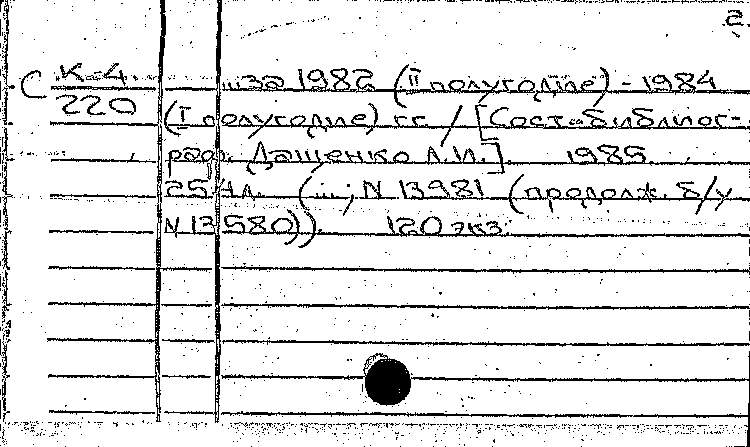 2.
С К-4 ...за 1982 (II полугодие) - 1984
220 (I полугодие) гг. / [Сост.-библиог-
раф. Дащенко Л.И.]. 1985.
254л. (...; N 13981 (продолж. б/у
N 13580)). 120 экз.